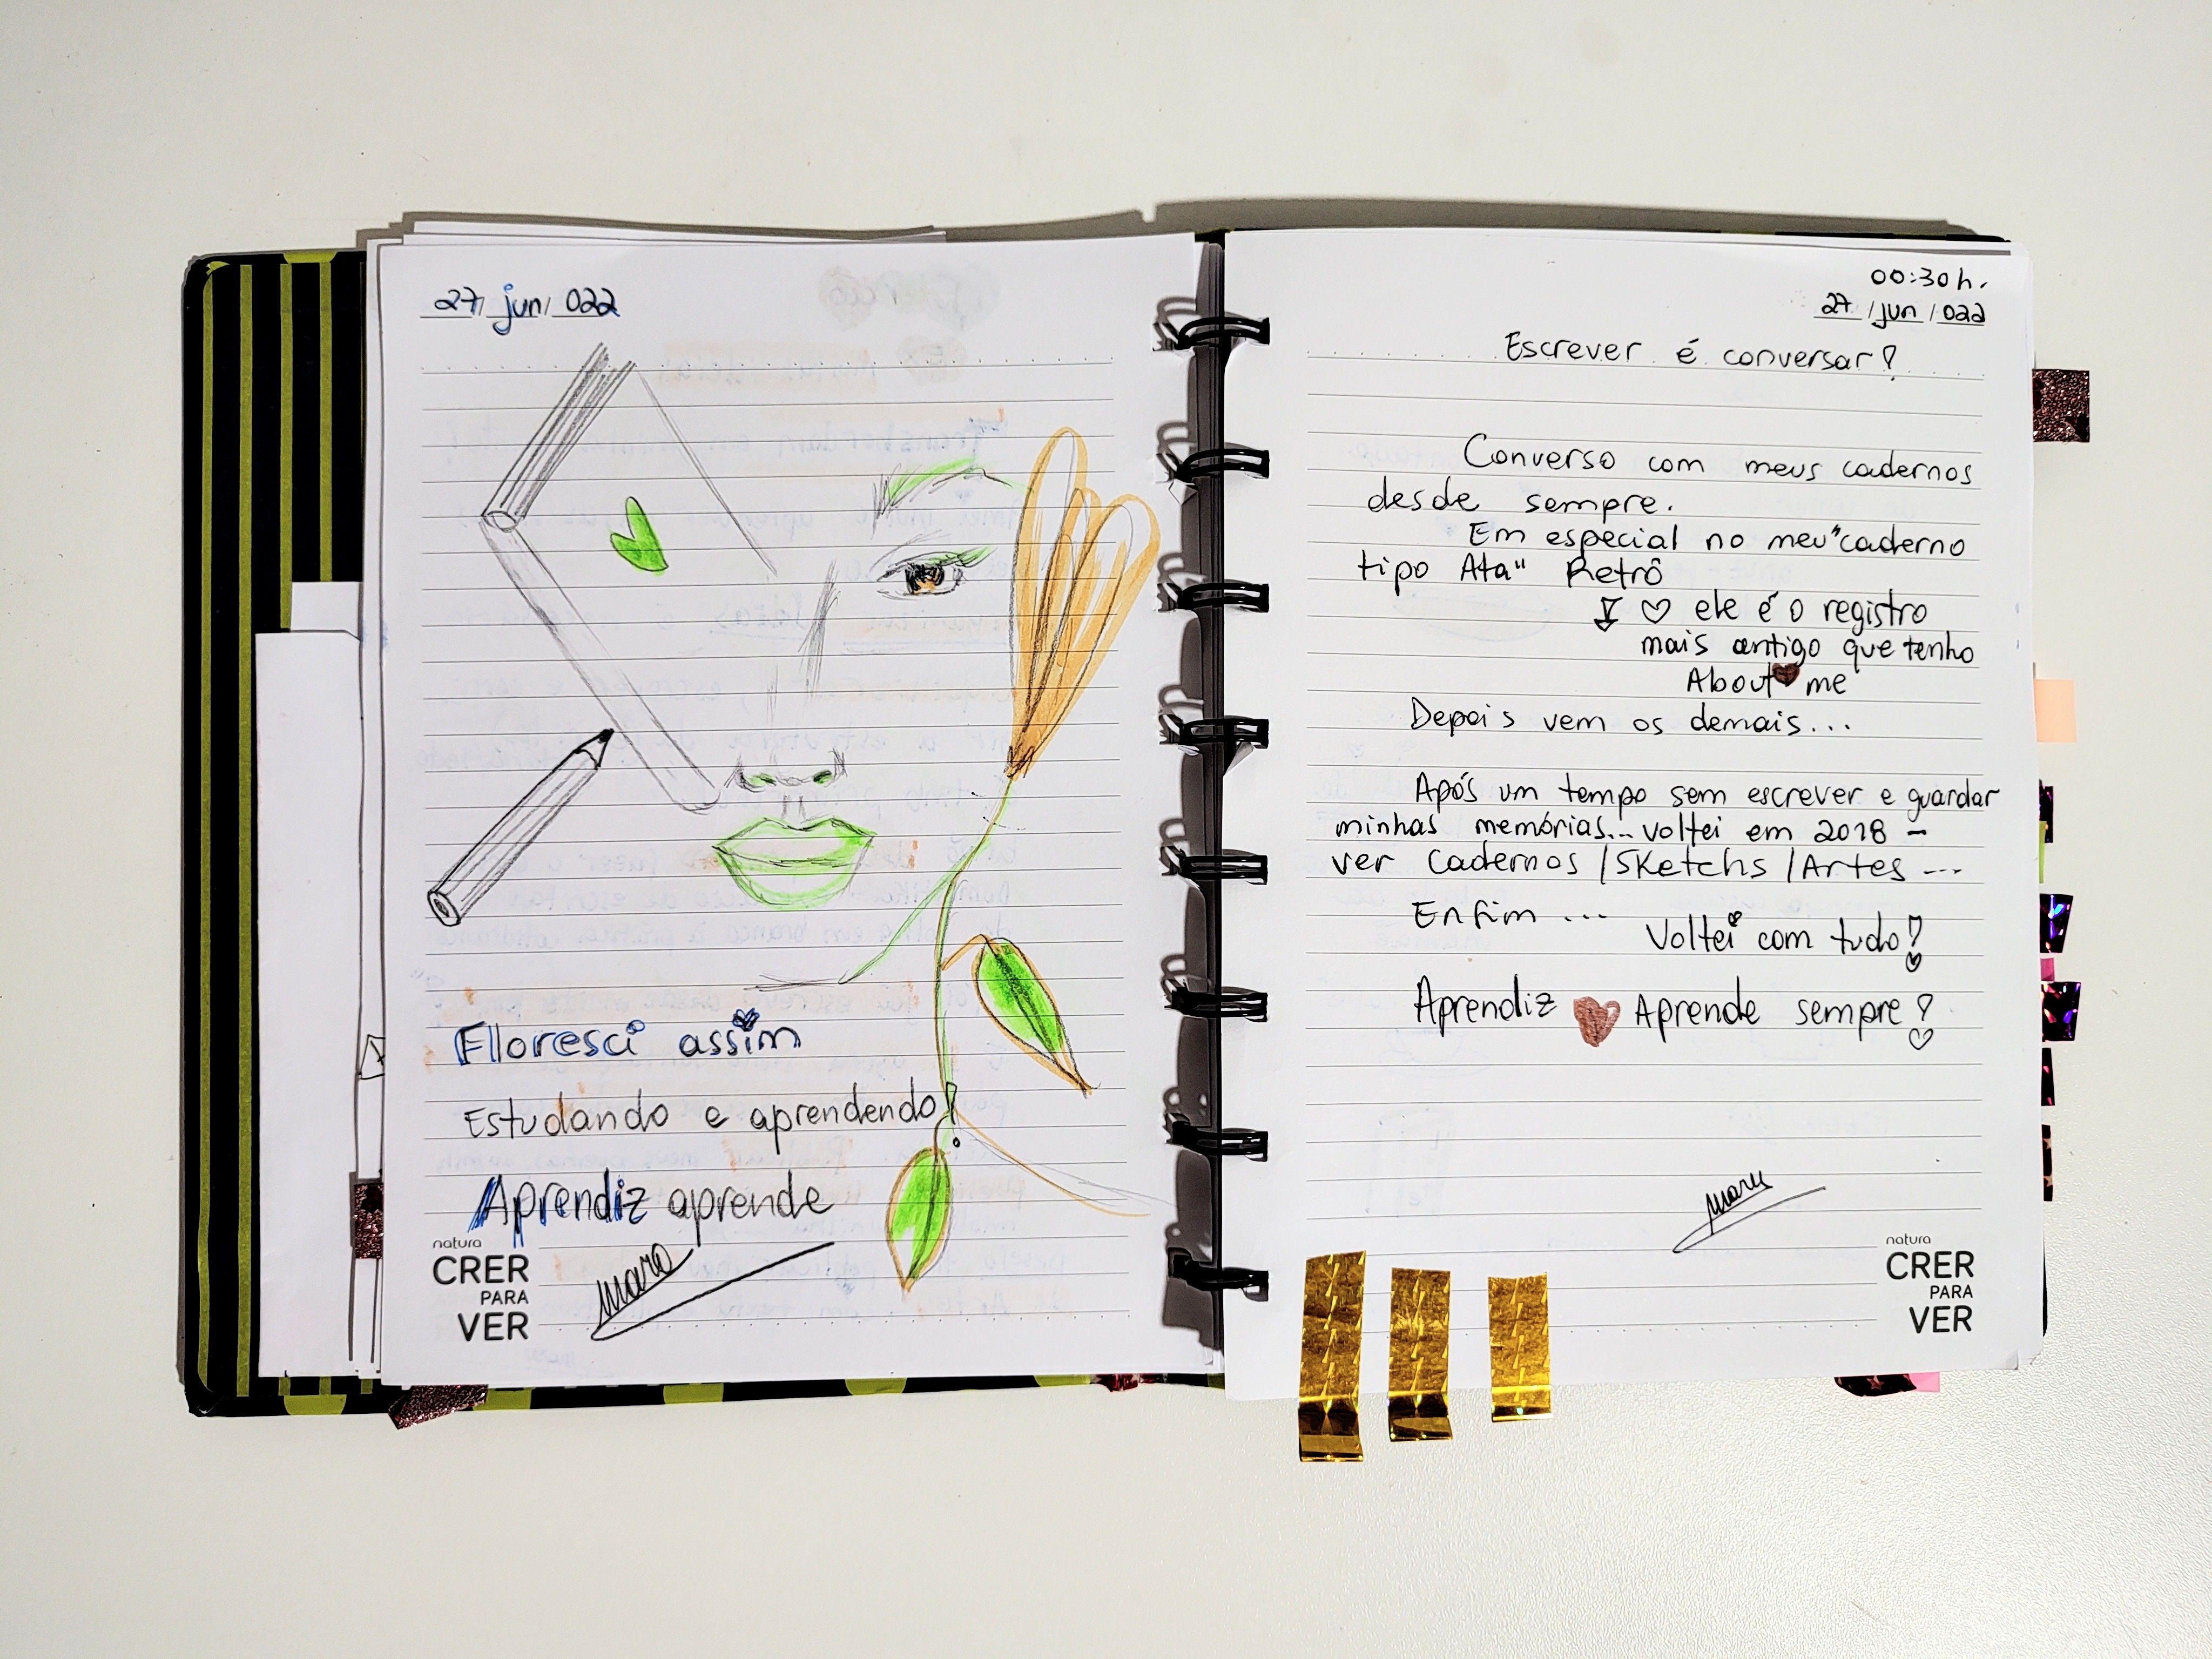 27/ jun/ 022
Floresci assim
Estudando e aprendendo!
Aprendiz aprende
natura
CRER
PARA
VER
00:30h.
27 /jun /022
Escrever é conversar!
Converso com meus cadernos
desde sempre.
Em especial no meu "caderno
tipo Ata" Retrô
ele é o registro
mais antigo que tenho
About me
Depois vem os demais...
Após um tempo sem escrever e guardar
minhas memórias... voltei em 2018 -
ver cadernos /Sketchs /Artes ...
Enfim ...
Voltei com tudo!
Aprendiz Aprende sempre!
natura
CRER
PARA
VER